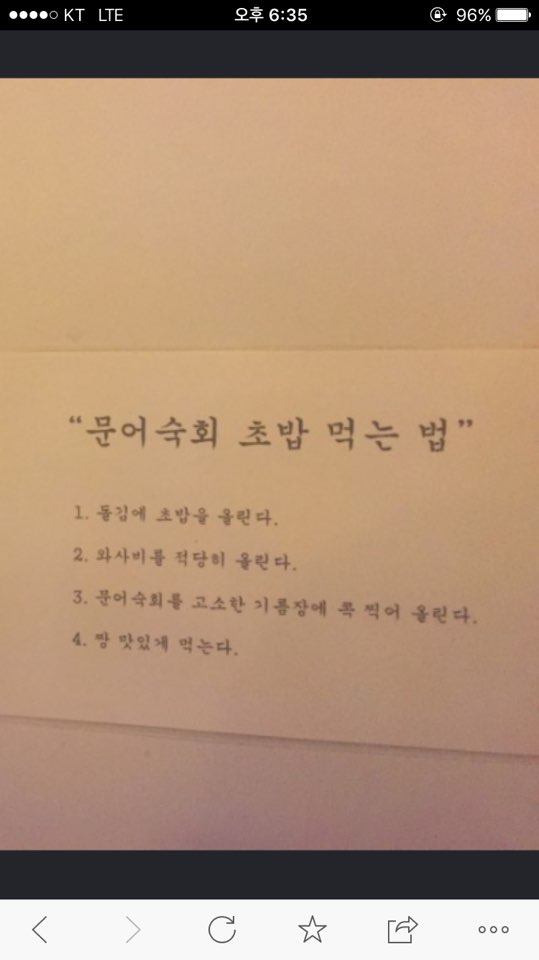 KT LTE 오후 6:35 96%
“문어숙회 초밥 먹는 법”
1. 돌김에 초밥을 올린다.
2. 와사비를 적당히 올린다.
3. 문어숙회를 고소한 기름장에 콕 찍어 올린다.
4. 짱 맛있게 먹는다.